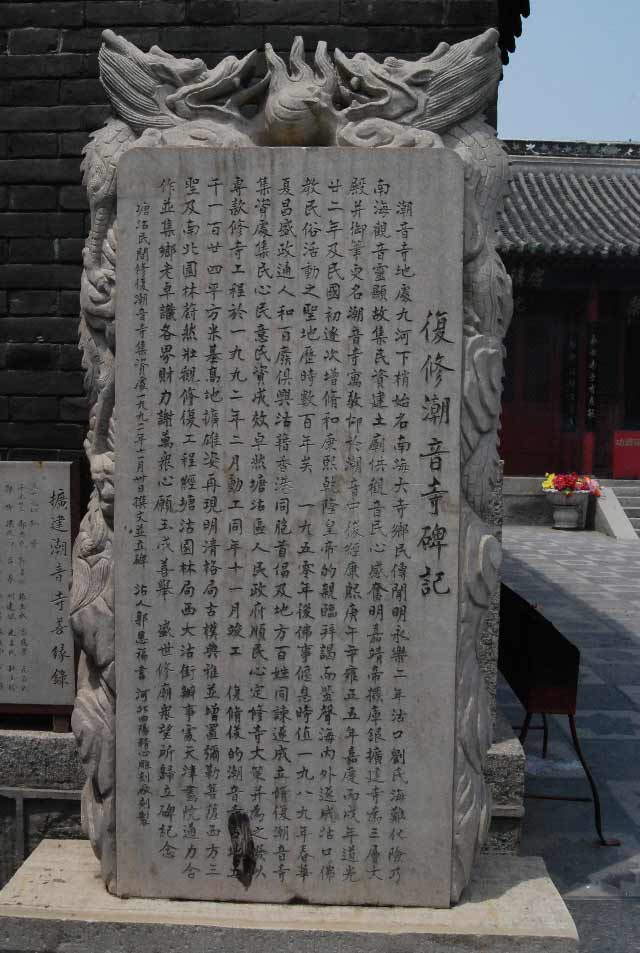 復修潮音寺碑記
潮音寺地處九河下梢始名南海大寺鄉民傳聞明永樂二年沽口劉氏海難化險乃
南海觀音靈顯故集民資建土廟供觀音民心感奮明嘉靖帝撥庫銀擴建寺為三層大
殿并御筆更名潮音寺寓敬仰於潮音中像經康熙庚午辛雍正五年嘉慶丙戌年道光
廿二年及民國初逐次增修和康熙乾隆皇帝的親臨拜謁而蜚聲海內外遂成沽口佛
教民俗活動之聖地歷時數百年矣 一九五零年後佛事偃息時值一九八九年春華
夏昌盛政通人和百廢俱興沽籍香港同胞首倡及地方百姓同諫遂成立脩復潮音寺
集資處集民心民意民資成效卓然塘沽區人民政府順民心定修寺大策并為之
專款修寺工程於一九九二年二月動工同年十一月竣工 復脩後的潮音寺
千一百廿四平方米基高地擴雄姿再現明清格局古樸典雅並增置彌勒菩薩西方三
聖及南北園林蔚然壯觀修復工程經塘沽園林局西大沽街辦事處天津畫院通力合
作並集鄉老卓識各界財力謝萬衆心願玉成善舉 盛世修廟衆望所歸立碑紀念
塘沽民間修復潮音寺集資處一九九二年十一月廿日撰文並立碑 沽人郭恩福書 河北曲陽 雕刻廠刻製
擴建潮音寺善緣錄